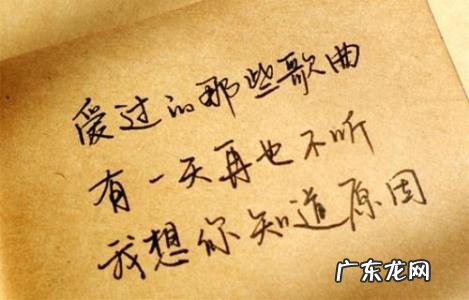 爱过的那些歌曲
有一天再也不听
我想你知道原因
广东龙网